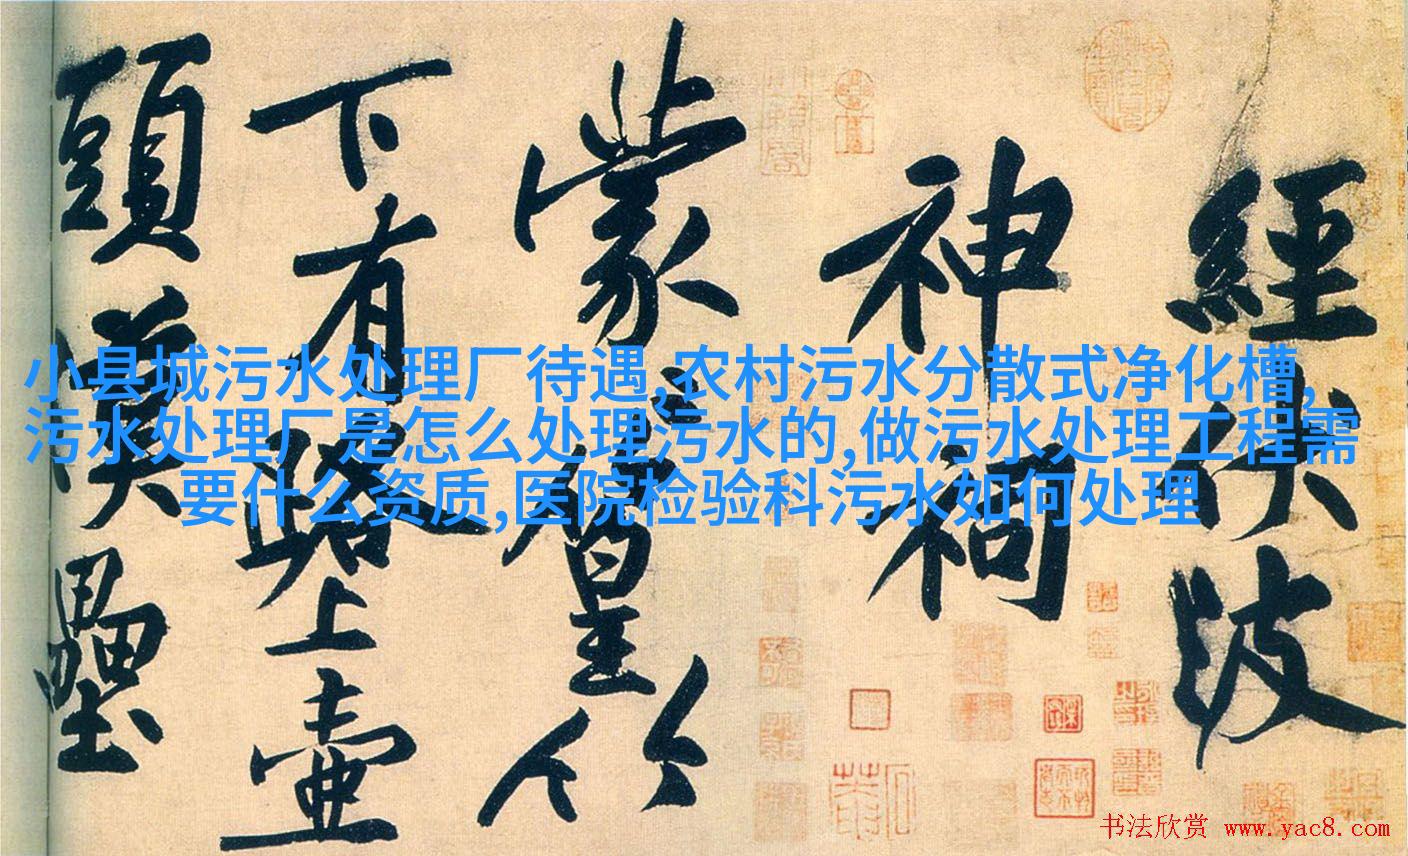 小县城污水处理厂待遇,农村污水分散式净化槽,
污水处理厂是怎么处理污水的,做污水处理工程需
要什么资质,医院检验科污水如何处理
經伏波
神祠
蒙蒙篁竹
下有路上壺
頭漢壘
书法欣赏 www.yac8.com